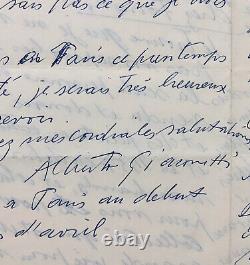 sans pas ce que je vous
à Paris ce printemps
té, je serais très heureux
evoir.
ez mes cordiales salutations
Alberto Giacometti
à Paris au début
s d'avril